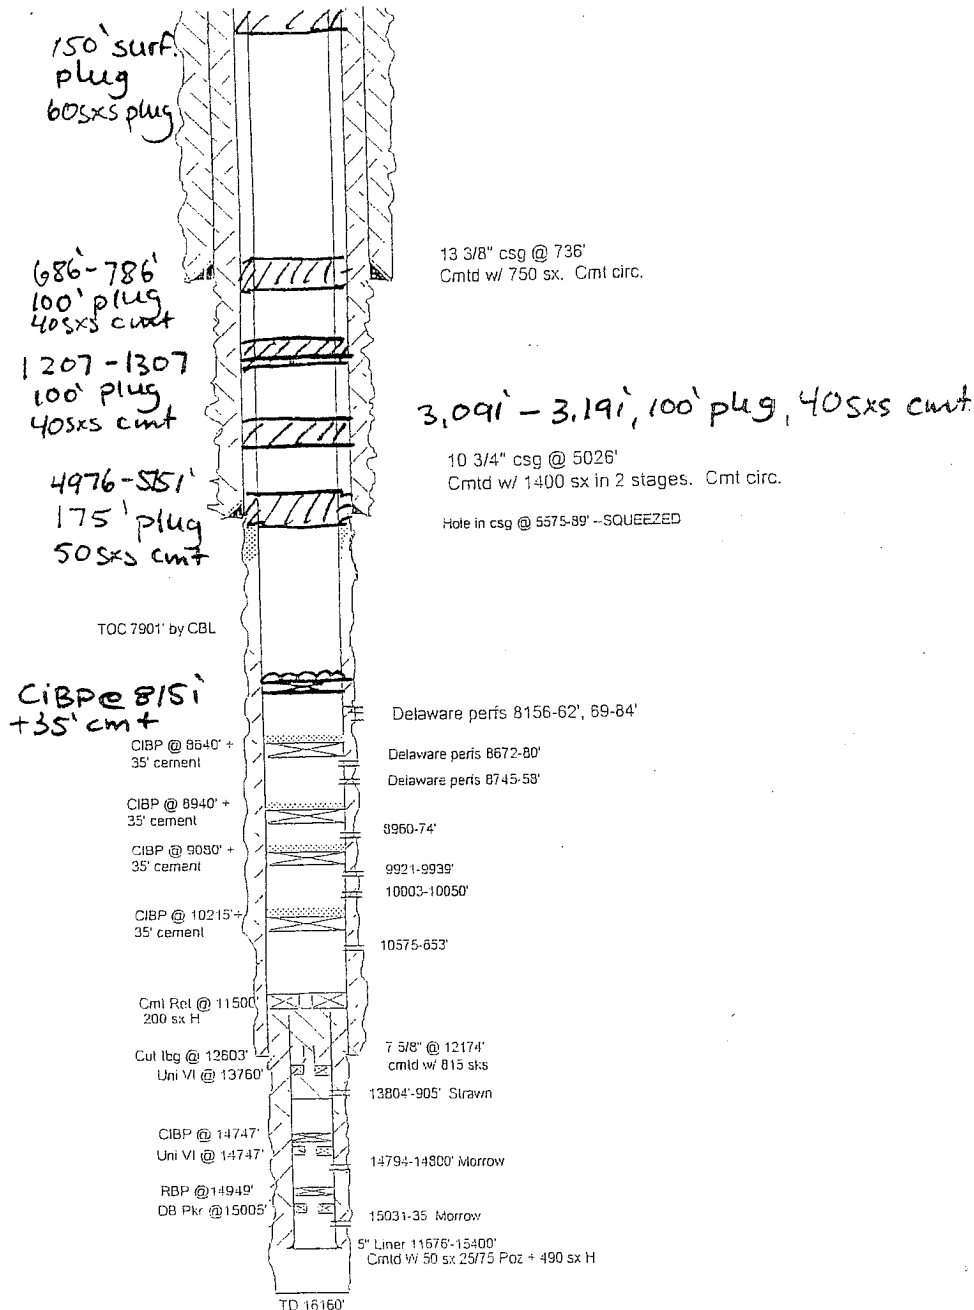 150' surf.
plug
60sxs plug
13 3/8" csg @ 736'
Cmtd w/ 750 sx. Cmt circ.
686'-786'
100' plug
40sxs cmt
1207-1307
100' plug
40sxs cmt
3,091'-3,191', 100' plug, 40sxs cmt
10 3/4" csg @ 5026'
Cmtd w/ 1400 sx in 2 stages. Cmt circ.
4976-5151'
175' plug
50sxs cmt
Hole in csg @ 5575-89' --SQUEEZED
TOC 7901' by CBL
CiBP@ 8151'
+35' cmt
Delaware perfs 8156-62', 69-84'
CIBP @ 8640' +
35' cement
Delaware perfs 8672-80'
Delaware perfs 8745-58'
CIBP @ 8940' +
35' cement
8960-74'
CIBP @ 9080' +
35' cement
9921-9939'
10003-10050'
CIBP @ 10215'+
35' cement
10575-653'
Cmt Ret @ 11500'
200 sx H
Cut tbg @ 12603'
Uni VI @ 13760'
7 5/8" @ 12174'
cmtd w/ 815 sks
13804'-905' Strawn
CIBP @ 14747'
Uni VI @ 14747'
14794-14800' Morrow
RBP @14949'
DB Pkr @15005'
15031-35 Morrow
5" Liner 11676'-15400'
Cmtd W/ 50 sx 25/75 Poz + 490 sx H
TD 16160'